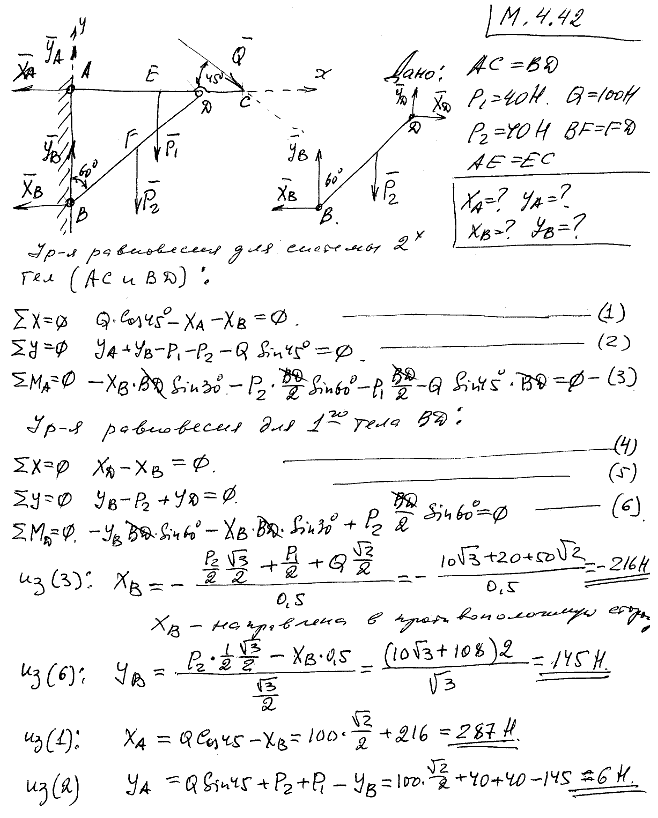 М.4.42
Дано: AC = BD
P₁=40H Q=100H
P₂=40H BF=FD
AE=EC
X_A=? Y_A=?
X_B=? Y_B=?
y
Y̅_A
X̅_A A E D C x
Q̅
45°
Y̅_B F P̅₁
60°
X̅_B B P̅₂
Y̅_D X̅_D
D
Y̅_B
60°
X̅_B B P̅₂
Ур-я равновесия для системы 2ˣ
тел (AC и BD):
ΣX=0 Q·Cos45°-X_A-X_B=0. (1)
ΣY=0 Y_A+Y_B-P₁-P₂-Q Sin45°=0. (2)
ΣM_A=0 -X_B·BD Sin30°-P₂·BD/2 Sin60°-P₁ BD/2-Q Sin45°·BD=0 -(3)
Ур-я равновесия для 1го тела BD:
(4)
ΣX=0 X_D-X_B=0.
(5)
ΣY=0 Y_B-P₂+Y_D=0.
ΣM_D=0. -Y_B BD·Sin60°-X_B·BD·Sin30°+P₂ BD/2 Sin60°=0 (6)
из (3): X_B = - (P₂/2 √3/2 + P₁/2 + Q √2/2)/0,5 = - (10√3+20+50√2)/0,5 = -216H
X_B - направлена в противоположную
из (6): Y_B = (P₂·1/2 √3/2 - X_B·0,5)/(√3/2) = (10√3+108)2/√3 = 145 H.
из (1): X_A = Q Cos45-X_B = 100·√2/2 + 216 = 287 H.
из (2) Y_A = Q Sin45 + P₂ + P₁ - Y_B = 100·√2/2 + 40 + 40 - 145 = 6 H.